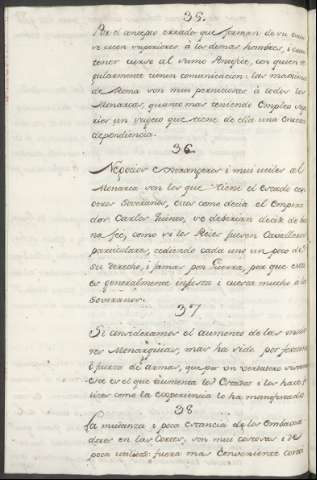 35.
Por el concepto errado que forman de su
se creen superiores a los demas hombres, i
tener curso al sumo Pontifice, con quien re
gularmente tienen comunicacion: las maximas
de Roma son mui perniciosas à todos los
Monarcas, quanto mas teniendo Empleo supe
rior un sugeto que tiene de ella una
dependencia.
36.
Negocios Estrangeros i mui utiles al
Monarca son los que tiene el Estado con
otros Soveranos, estos como decia el Empera
dor Carlos Quinto, se deberian decidir de bue
na feè, como si los Reies fuesen Cavalleros
particulares, cediendo cada uno un poco de
su derecho, i jamas por Guerra, por que esta
es generalmente infesta i cuesta mucho a los
Soveranos.
37
Si consideramos el aumento de las
res Monarquias, mas ha sido por
ò fuerza de armas, que por un verdadero
este es el que aumenta los Estados i los hace
lices como la experiencia lo ha manifestado
38
La mudanza i poca estancia de los Embaxa
dores en las Cortes, son mui costosas i de
poca utilidad: fuera mas conveniente